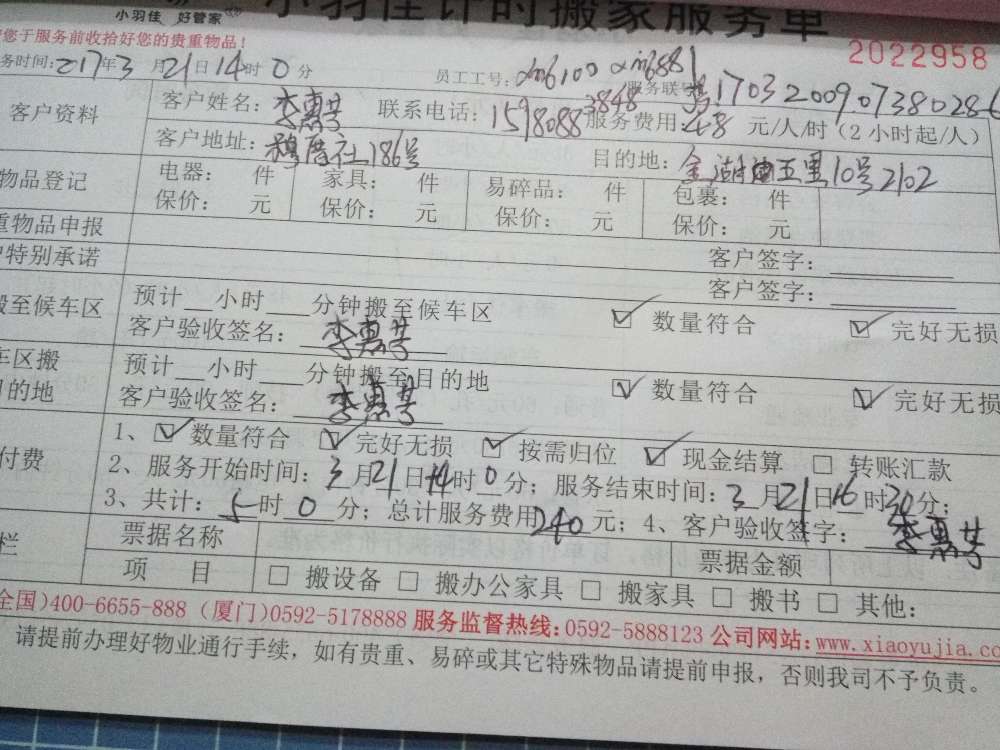 小羽佳 好管家
小羽佳计时搬家服务单
您于服务前收拾好您的贵重物品! 2022958
务时间:217年3月21日14时0分 员工工号: 服务联号:
客户资料 客户姓名:李惠芳 联系电话: 服务费用:48元/人/时(2小时起/人)
客户地址: 社186号 目的地:金湖 五里10号2102
物品登记 电器: 件 家具: 件 易碎品: 件 包裹: 件
保价: 元 保价: 元 保价: 元 保价: 元
重物品申报
特别承诺 客户签字:
客户签字:
搬至候车区 预计 小时 分钟搬至候车区 ☑ 数量符合 ☑ 完好无损
客户验收签名:李惠芳
车区搬 预计 小时 分钟搬至目的地 ☑ 数量符合 ☑ 完好无损
目的地 客户验收签名:李惠芳
付费 1、☑数量符合 ☑完好无损 ☑按需归位 ☑现金结算 □转账汇款
2、服务开始时间:3月21日14时0分;服务结束时间:3月21日16时30分;
3、共计:5时0分;总计服务费用240元;4、客户验收签字:李惠芳
栏 票据名称 票据金额
项 目 □搬设备 □搬办公家具 □搬家具 □搬书 □其他:
全国)400-6655-888 (厦门)0592-5178888 服务监督热线:0592-5888123 公司网站:www.xiaoyujia.co
请提前办理好物业通行手续,如有贵重、易碎或其它特殊物品请提前申报,否则我司不予负责。